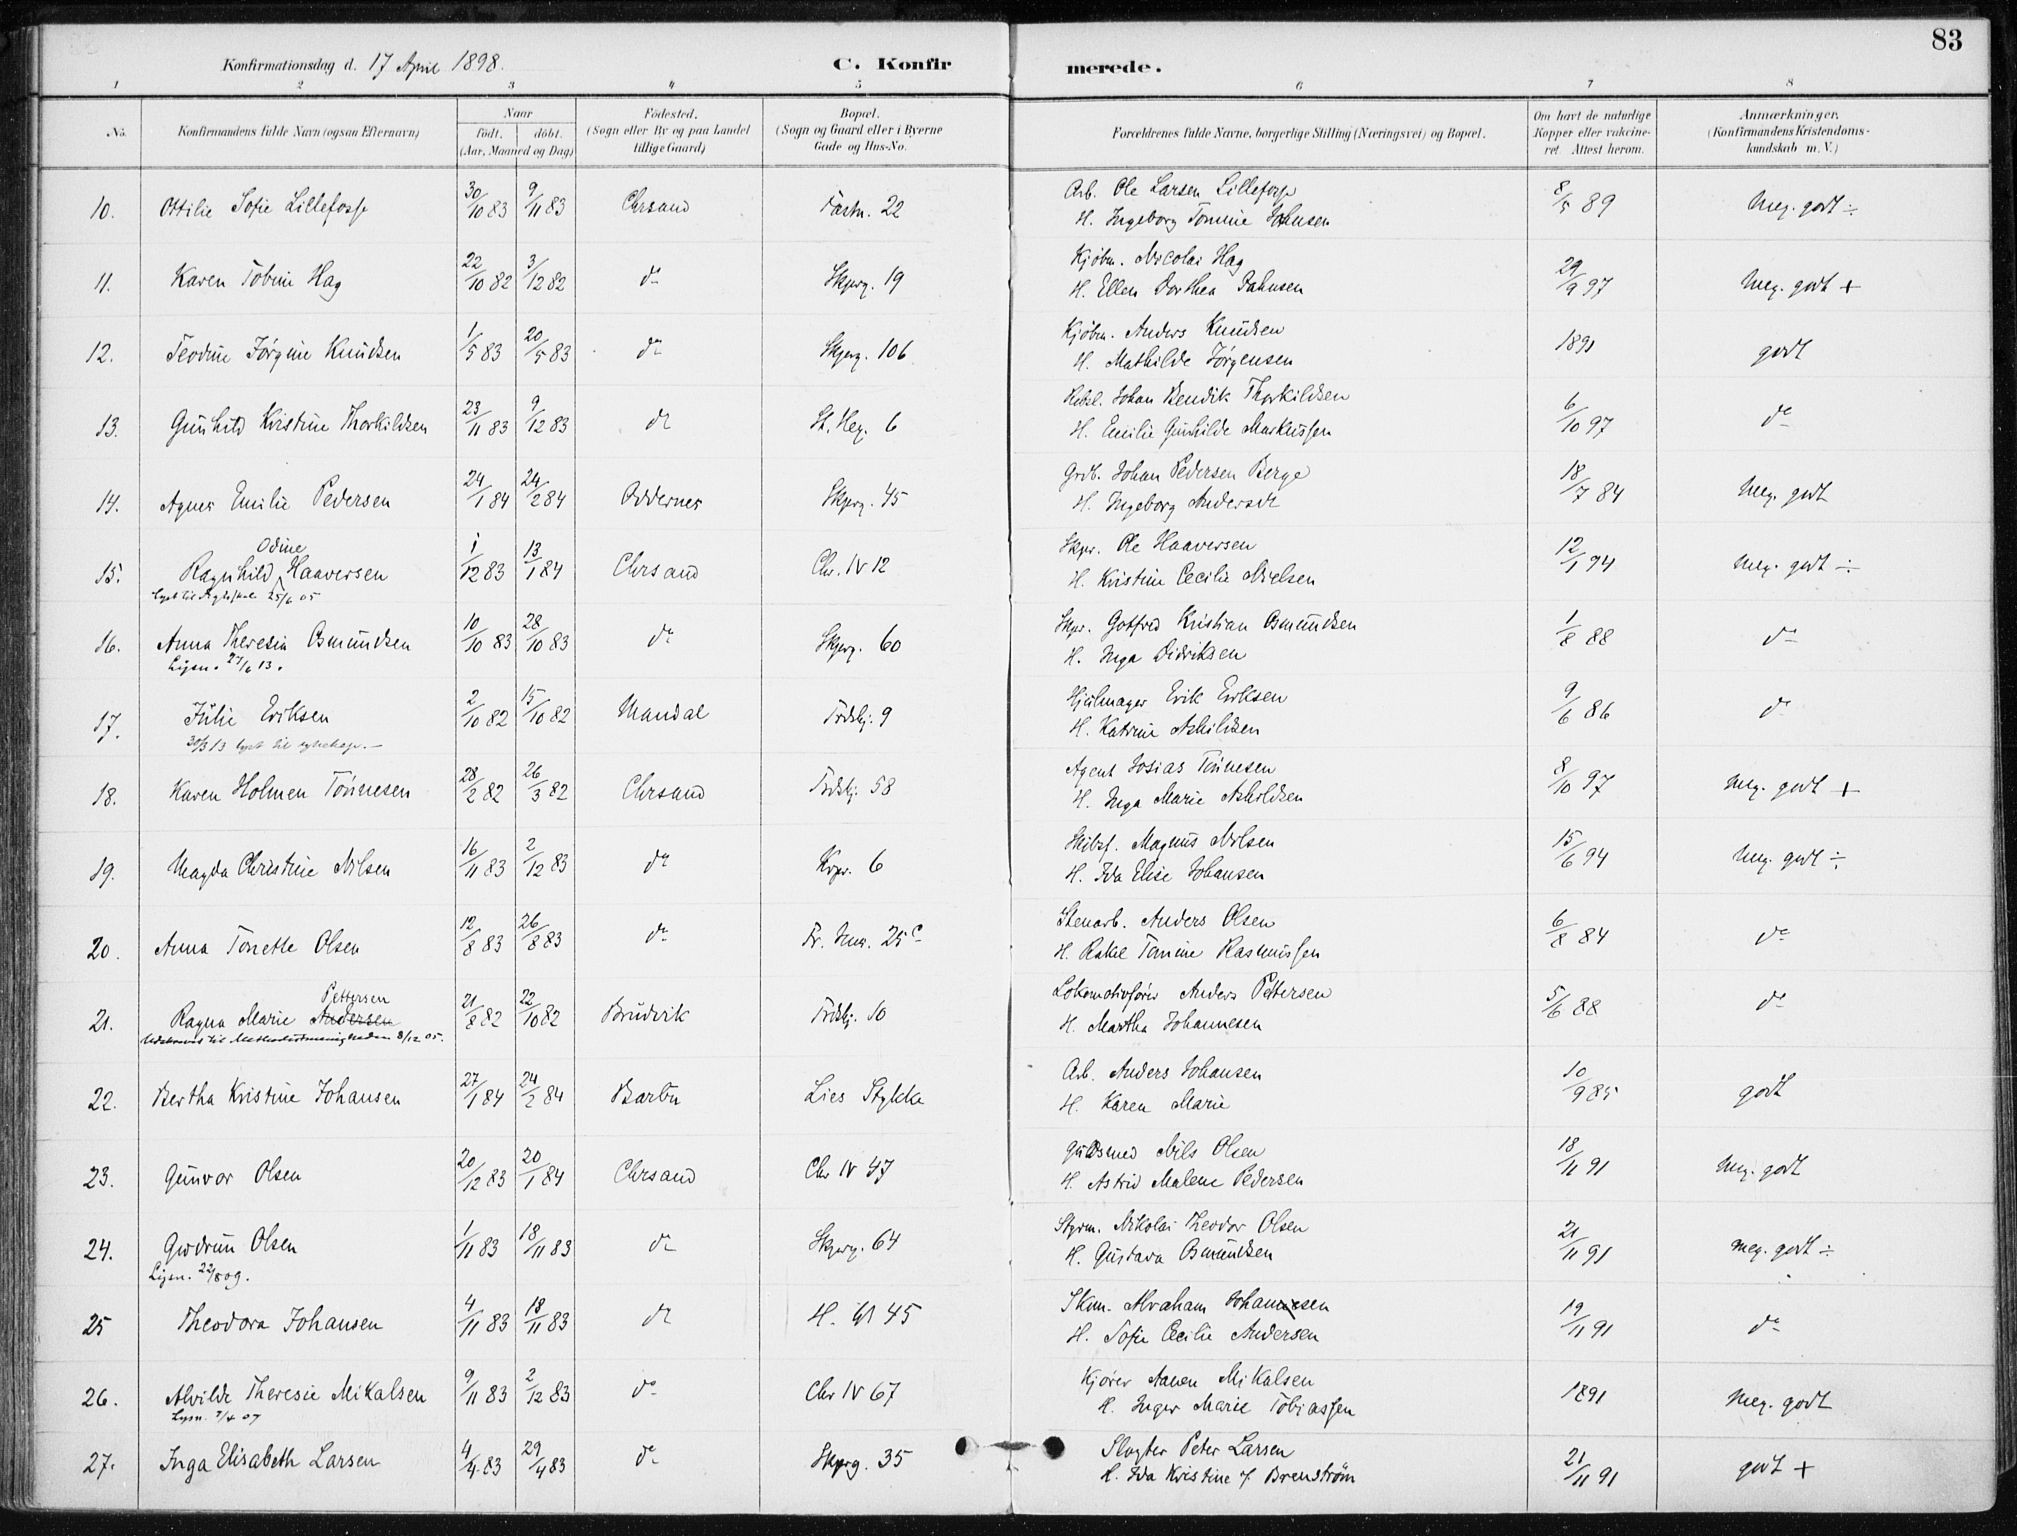 83
Konfirmationsdag d. 17 April 1898. C. Konfirmerede.
1 2 3 4 5 6 7 8
No. Konfirmandens fulde Navn (ogsaa Efternavn) Naar født. døbt. (Aar, Maaned og Dag) Fødested. (Sogn eller By og paa Landet tillige Gaard) Bopæl. (Sogn og Gaard eller i Byerne Gade og Hus-No. Forældrenes fulde Navne, borgerlige Stilling (Næringsvei) og Bopæl. Om havt de naturlige Kopper eller vakcineret. Attest herom. Anmærkninger. (Konfirmandens Kristendomskundskab m. V.)
10. Ottilie Sofie Lillefosse 30/10 83 9/11 83 Chrsand Fæstn. 22 Arb. Ole Larsen Lillefosse 8/5 89 Meg. godt ÷
H. Ingeborg Tomine Johnsen
11. Karen Tobine Hag 22/10 82 3/12 82 do Skperg. 19 Kjøbm. Nicolai Hag 29/9 97 Meg. godt +
H. Ellen Dorthea
12. Teodine Jørgine Knudsen 1/5 83 20/5 83 do Skperg. 106 Kjøbm. Anders Knudsen 1891 godt
H. Mathilde Jørgensen
13. Gunhild Kristine Thorkildsen 23/11 83 9/12 83 do St. Heg. 6 Johan Bendik Thorkildsen 6/10 97 do
H. Emilie Gunhilde Markussen
14. Agnes Emilie Pedersen 24/1 84 24/2 84 Oddernes Skperg. 45 Grdb. Johan Pedersen Berge 18/7 84 Meg. godt
H. Ingeborg Andersdt
15. Ragnhild Odine Haaversen 1/12 83 13/1 84 Chrsand Chr. IV 12 Skpr. Ole Haaversen 12/1 94 Meg. godt ÷
25/6 05 H. Kristine Cecilie Nielsen
16. Anna Theresia Osmundsen 10/10 83 28/10 83 do Skperg. 60 Skpr. Gotfred Kristian Osmundsen 1/8 88 do
Lysn. 27/6 13. H. Inga Didriksen
17. Julie Eriksen 2/10 82 15/10 82 Mandal Frdskj. 9 Hjulmager Erik Eriksen 9/6 86 do
30/3 13 lyst til H. Katrine Askildsen
18. Karen Holmen Tønnesen 28/2 82 26/3 82 Chrsand Frdskj. 58 Agent Josias Tønnesen 8/10 97 Meg. godt +
H. Inga Marie Askildsen
19. Magda Christine Nilsen 16/11 83 2/12 83 do Krpr. 6 Skibsf. Magnus Nilsen 15/6 94 Meg. godt ÷
H. Ida Elise Johansen
20. Anna Tonette Olsen 12/8 83 26/8 83 do 25 c Stenarb. Anders Olsen 6/8 84 do
H. Rakel Tomine Rasmussen
21. Ragna Marie Andersen Pettersen 21/8 82 22/10 82 Brudvik Frdskj. 10 Lokomotivfører Anders Pettersen 5/6 88 do
Udskrevet til Methodistmenigheden 8/12 05. H. Martha Johannesen
22. Bertha Kristine Johansen 27/1 84 24/2 84 Barbu Lies Stykke Arb. Anders Johansen 10/9 85 godt
H. Karen Marie
23. Gunvor Olsen 20/12 83 20/1 84 Chrsand Chr IV 47 Guldsmed Nils Olsen 18/11 91 Meg. godt
H. Astrid Malene Pedersen
24. Gudrun Olsen 1/11 83 18/11 83 do Skperg. 64 Styrm. Nikolai Theodor Olsen 21/11 91 meg. godt ÷
Lysn. 22/8 09. H. Gustava Osmundsen
25 Theodora Johansen 4/11 83 18/11 83 do H. 45 Skm. Abraham Johannesen 19/11 91 do
H. Sofie Cecilie Andersen
26. Alvilde Theresie Mikalsen 9/11 83 2/12 83 do Chr IV 67 Kjører Aanen Mikalsen 1891 Meg. godt
Lysn. 7/4 07 H. Inger Marie Tobiassen
27. Inga Elisabeth Larsen 4/4 83 29/4 83 do Skperg. 35 Slagter Peter Larsen 21/11 91 godt +
H. Ida Kristine f. Brenstrøm